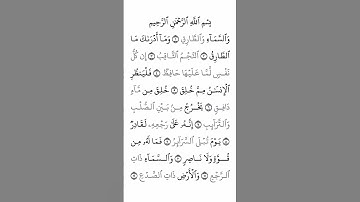 بِسْمِ ٱللَّهِ ٱلرَّحْمَٰنِ ٱلرَّحِيمِ
وَٱلسَّمَآءِ وَٱلطَّارِقِ ۝ وَمَآ أَدْرَىٰكَ مَا
ٱلطَّارِقُ ۝ ٱلنَّجْمُ ٱلثَّاقِبُ ۝ إِن كُلُّ
نَفْسٍ لَّمَّا عَلَيْهَا حَافِظٌ ۝ فَلْيَنظُرِ
ٱلْإِنسَٰنُ مِمَّ خُلِقَ ۝ خُلِقَ مِن مَّآءٍ
دَافِقٍ ۝ يَخْرُجُ مِنۢ بَيْنِ ٱلصُّلْبِ
وَٱلتَّرَآئِبِ ۝ إِنَّهُۥ عَلَىٰ رَجْعِهِۦ لَقَادِرٌ
۝ يَوْمَ تُبْلَى ٱلسَّرَآئِرُ ۝ فَمَا لَهُۥ مِن
قُوَّةٍ وَلَا نَاصِرٍ ۝ وَٱلسَّمَآءِ ذَاتِ
ٱلرَّجْعِ ۝ وَٱلْأَرْضِ ذَاتِ ٱلصَّدْعِ ۝